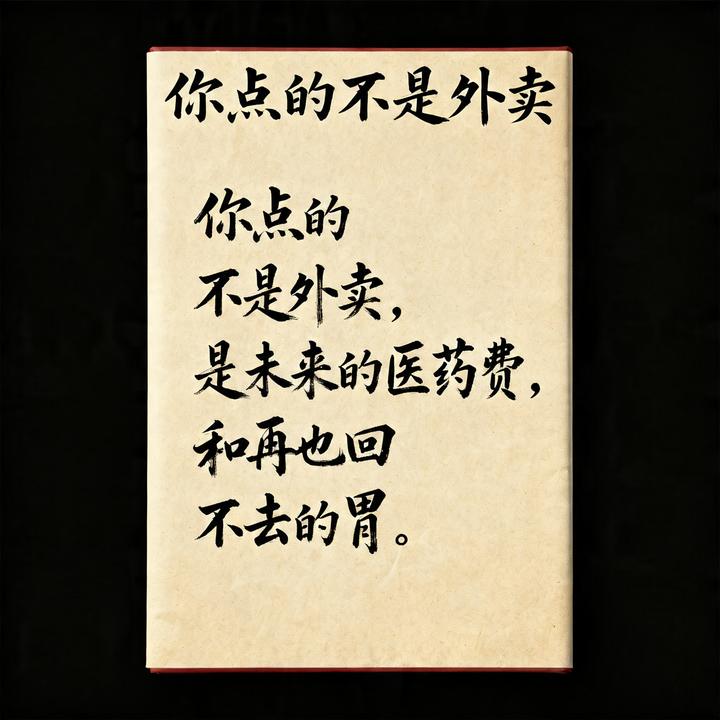 你点的不是外卖
你点的
不是外卖，
是未来的医药费，
和再也回
不去的胃。